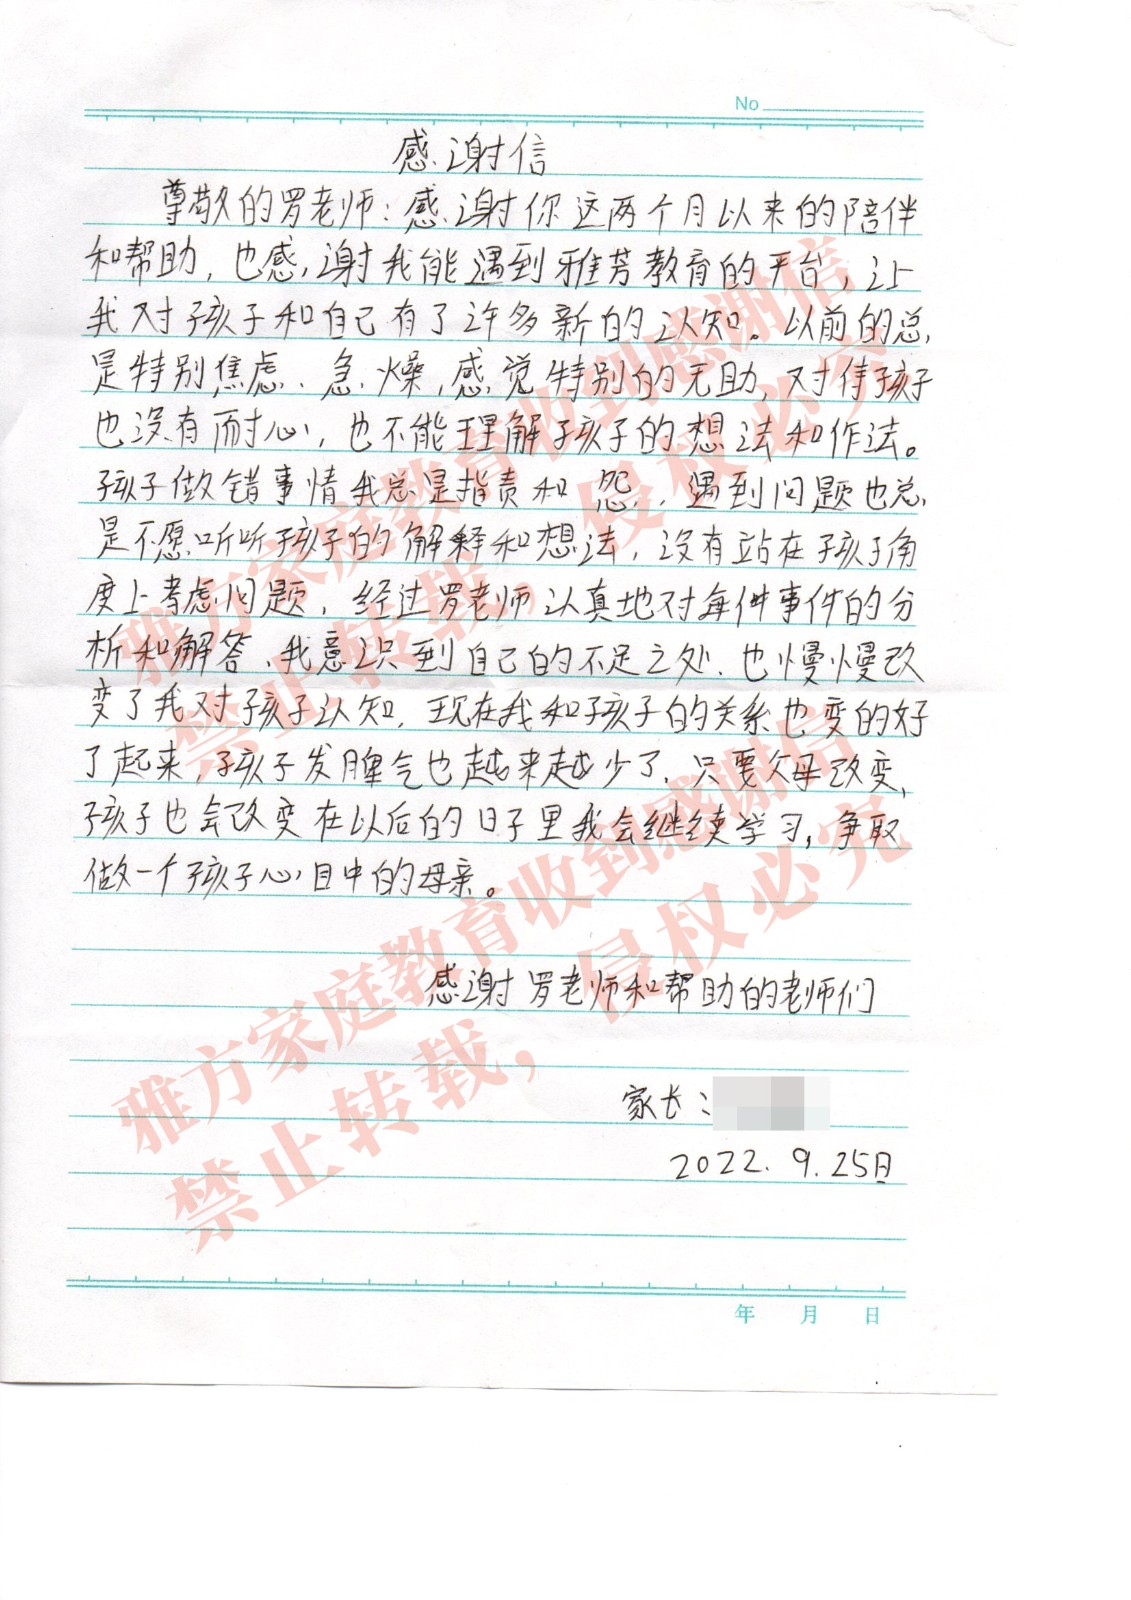 No
感谢信
尊敬的罗老师：感谢你这两个月以来的陪伴
和帮助，也感谢我能遇到雅芳教育的平台，让
我对孩子和自己有了许多新的认知。以前的总
是特别焦虑、急燥，感觉特别的无助，对待孩子
也没有耐心，也不能理解孩子的想法和作法。
孩子做错事情我总是指责和怨，遇到问题也总
是不愿听听孩子的解释和想法，没有站在孩子角
度上考虑问题，经过罗老师认真地对每件事件的分
析和解答、我意识到自己的不足之处、也慢慢改
变了我对孩子认知，现在我和孩子的关系也变的好
了起来，孩子发脾气也越来越少了，只要父母改变，
孩子也会改变在以后的日子里我会继续学习，争取
做一个孩子心目中的母亲。
感谢罗老师和帮助的老师们
家长：
2022.9.25日
年 月 日
雅方家庭教育收到感谢信
禁止转载，侵权必究
雅方家庭教育收到感谢信
禁止转载，侵权必究